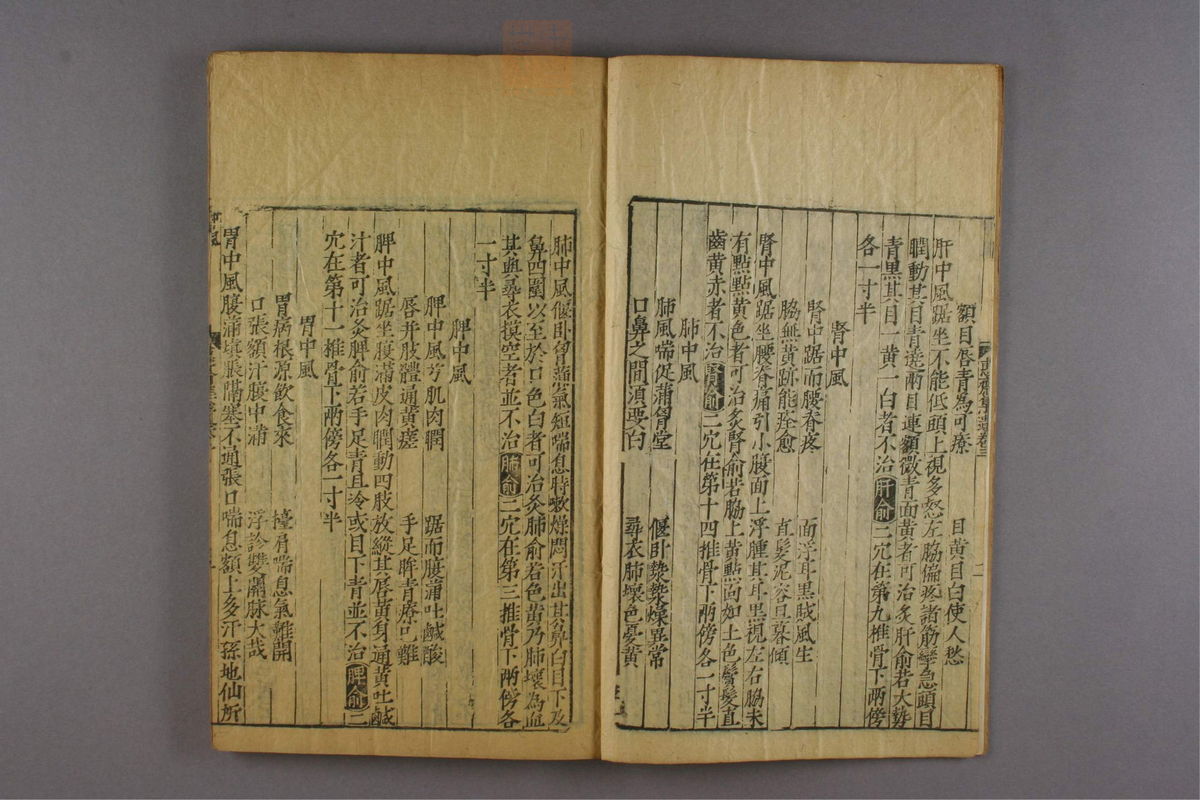 額目唇青為可療 目黄目白使人愁
肝中風踞坐不能低頭上視多怒左脇偏疼諸筋攣急頭目
瞤動其目青遶兩目連額微青面黄者可治灸肝俞若大勢
青黑其目一黄一白者不治肝俞二穴在第九椎骨下兩傍
各一寸半
腎中風
腎中踞而腰脊疼 面浮耳黑賊風生
脇無黄跡能痊愈 直髮泥容旦暮傾
腎中風踞坐腰脊痛引小腹面上浮腫其耳黑視左右脇未
有點點黄色者可治灸腎俞若脇上黄點面如土色鬢髮直
齒黄赤者不治腎俞二穴在第十四推骨下兩傍各一寸半
肺中風
肺風喘促滿胷堂 偃卧 燥異常
口鼻之間湏要白 尋衣肺壞色憂黄
肺中風偃卧胷滿氣短喘息時嗽燥悶汗出其鼻白目下及
鼻四圍以至於口色白者可治灸肺俞若色黄乃肺壞為血
其與尋衣摸空者並不治肺俞二穴在第三推骨下兩傍各
一寸半
脾中風
脾中風兮肌肉瞤 踞而腹滿吐鹹酸
唇并肢體通黄瘥 手足眸青療已難
脾中風踞坐腹滿皮肉瞤動四肢放縱其唇黄身通黄吐鹹
汁者可治灸脾俞若手足青且冷或目下青並不治脾俞二
穴在第十一推骨下兩傍各一寸半
胃中風
胃病根源飲食來 擡肩喘息氣難開
口張額汗膜中滿 浮診雙關脉大哉
胃中風腹滿 脹膈塞不通張口喘息額上多汗孫地仙所